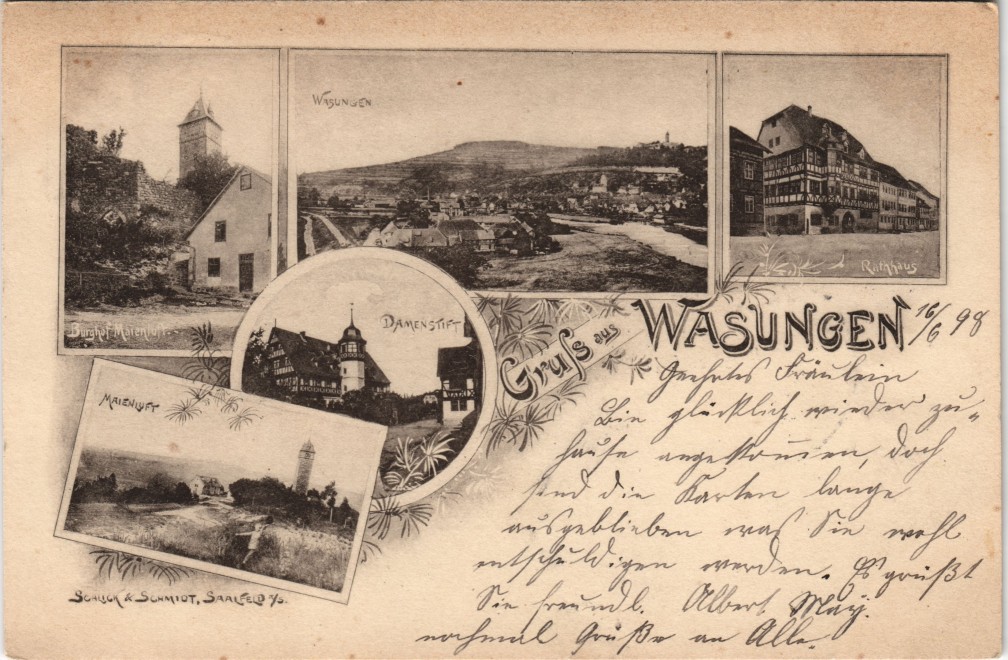 WASUNGEN
Rathhaus
Burghof Maienluft.
DAMENSTIFT
MAIENLUFT
Gruſs aus WASUNGEN
16/6 98
Geehrtes Fräulein
Bin glücklich wieder zu-
hause angekommen, doch
sind die Karten lange
ausgeblieben was Sie wohl
entschuldigen werden. Es grüßt
Sie freundl. Albert May.
nochmal Grüße an Alle.
SCHLICK & SCHMIDT, SAALFELD a/S.